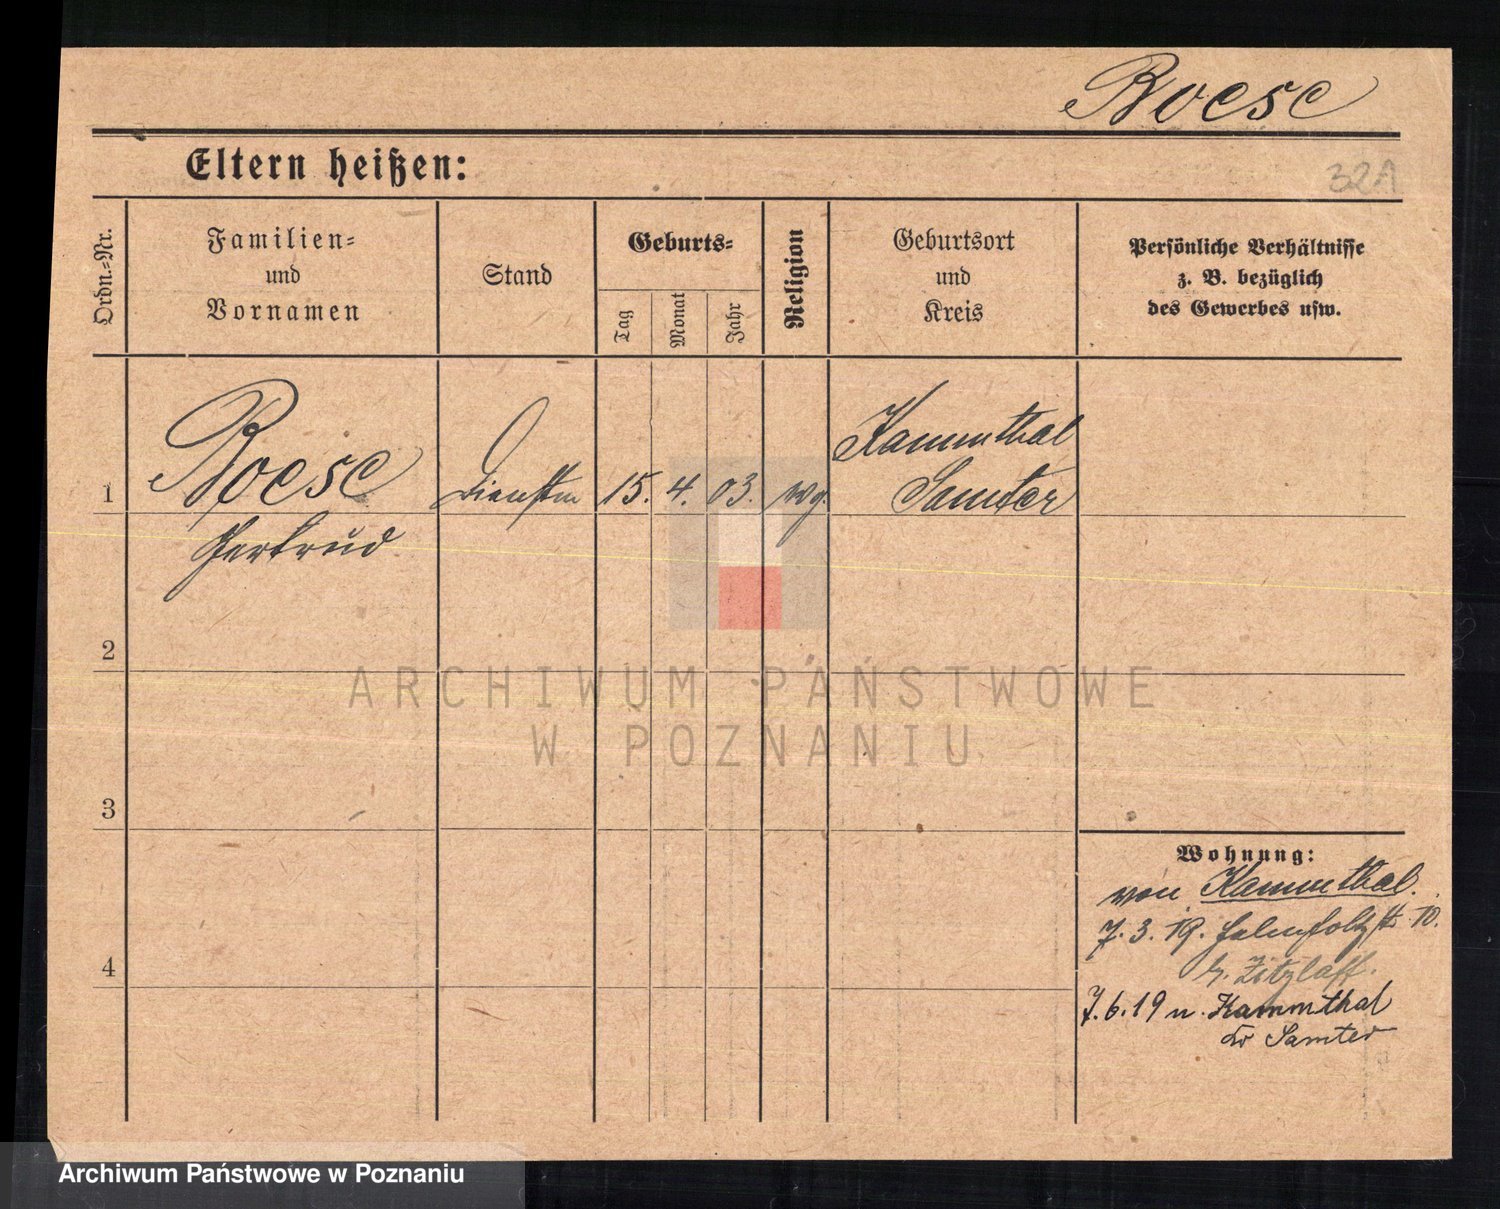 Boese
Eltern heißen:
321
Ordn.-Nr.
Familien-
und
Vornamen
Stand
Geburts-
Tag
Monat
Jahr
Religion
Geburtsort
und
Kreis
Persönliche Verhältnisse
z. B. bezüglich
des Gewerbes usw.
1
Boese
Gertrud
15. 4. 03.
Kammthal
Samter
2
3
4
Wohnung:
von Kammthal.
7. 3. 19. 10.
Zitzlaff.
7. 6. 19 n. Kammthal
Kr Samter
ARCHIWUM PAŃSTWOWE
W POZNANIU
Archiwum Państwowe w Poznaniu